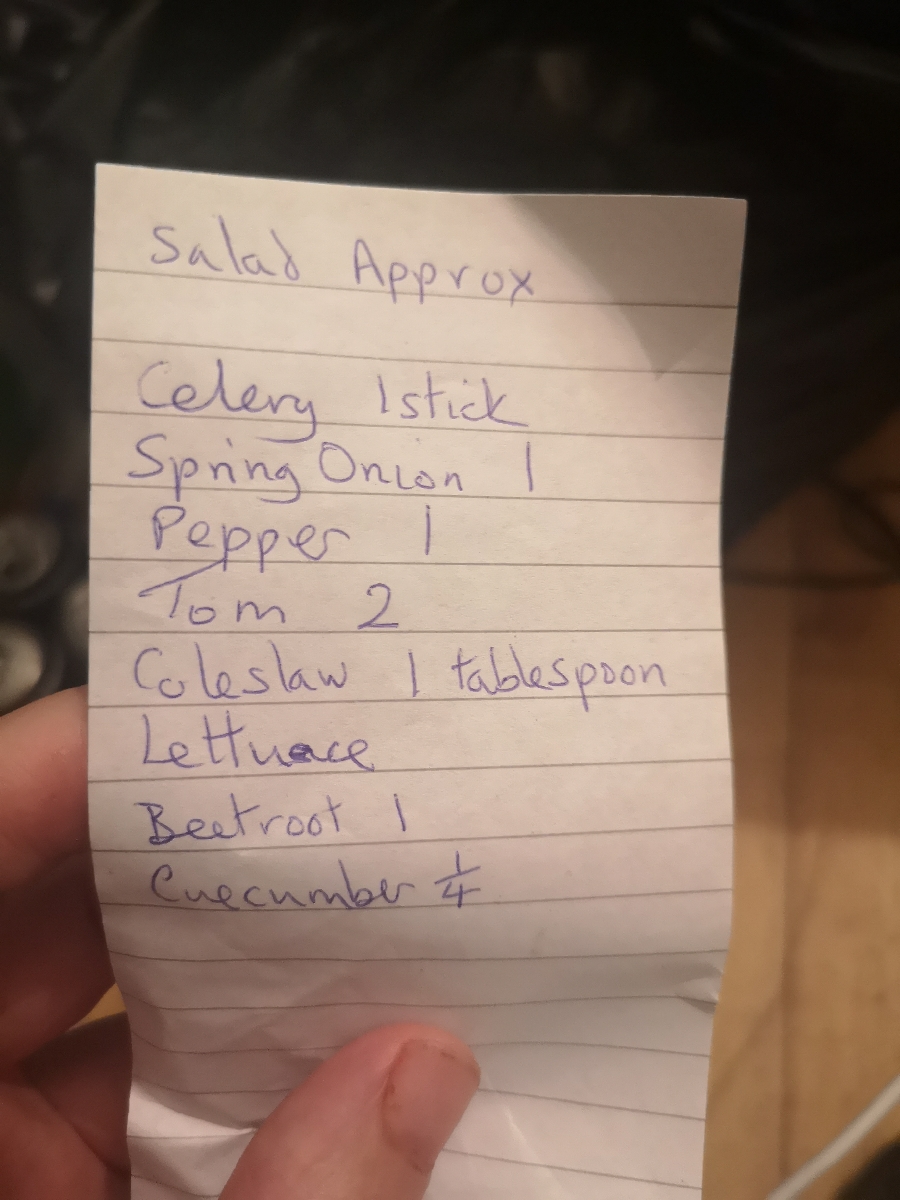 Salad Approx
Celery 1 stick
Spring Onion 1
Pepper 1
Tom 2
Coleslaw 1 tablespoon
Lettuace
Beetroot 1
Cuecumber 1/4